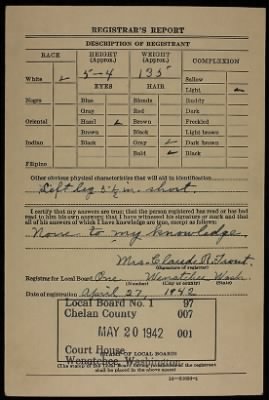 REGISTRAR'S REPORT
DESCRIPTION OF REGISTRANT
RACE HEIGHT (Approx.) WEIGHT (Approx.) COMPLEXION
White ✓ 5-4 135 Sallow
EYES HAIR Light ✓
Negro Blue Blonde Ruddy
Gray Red Dark
Oriental Hazel ✓ Brown Freckled
Brown Black Light brown
Indian Black Gray ✓ Dark brown
Bald ✓ Black
Filipino
Other obvious physical characteristics that will aid in identification
Left leg 3 ½ in. short.
I certify that my answers are true; that the person registered has read or has had
read to him his own answers; that I have witnessed his signature or mark and that
all of his answers of which I have knowledge are true, except as follows:
None to my knowledge.
Mrs. Claude R. Trout.
(Signature of registrar)
Registrar for Local Board One Wenatchee Wash.
(Number) (City or county) (State)
Date of registration April 27, 1942
Local Board No. 1 97
Chelan County 007
MAY 20 1942 001
Court House
Wenatchee, Washington
(STAMP OF LOCAL BOARD)
(The stamp of the Local Board having jurisdiction of the registrant
shall be placed in the above space)